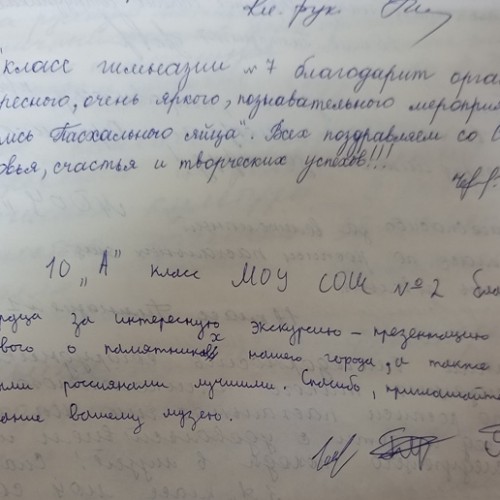 Кл. рук.
класс гимназии №7 благодарит орга
ресного, очень яркого, познавательного мероприя
ись Пасхального яйца". Всех поздравляем со С
овья, счастья и творческих успехов!!!
10 „А" класс МОУ СОШ №2 бла
рдца за интересную экскурсию – презентацию
вого о памятниках нашего города, а также
ыми россиянами лучшими. Спасибо, приглашайте
ание вашему музею.